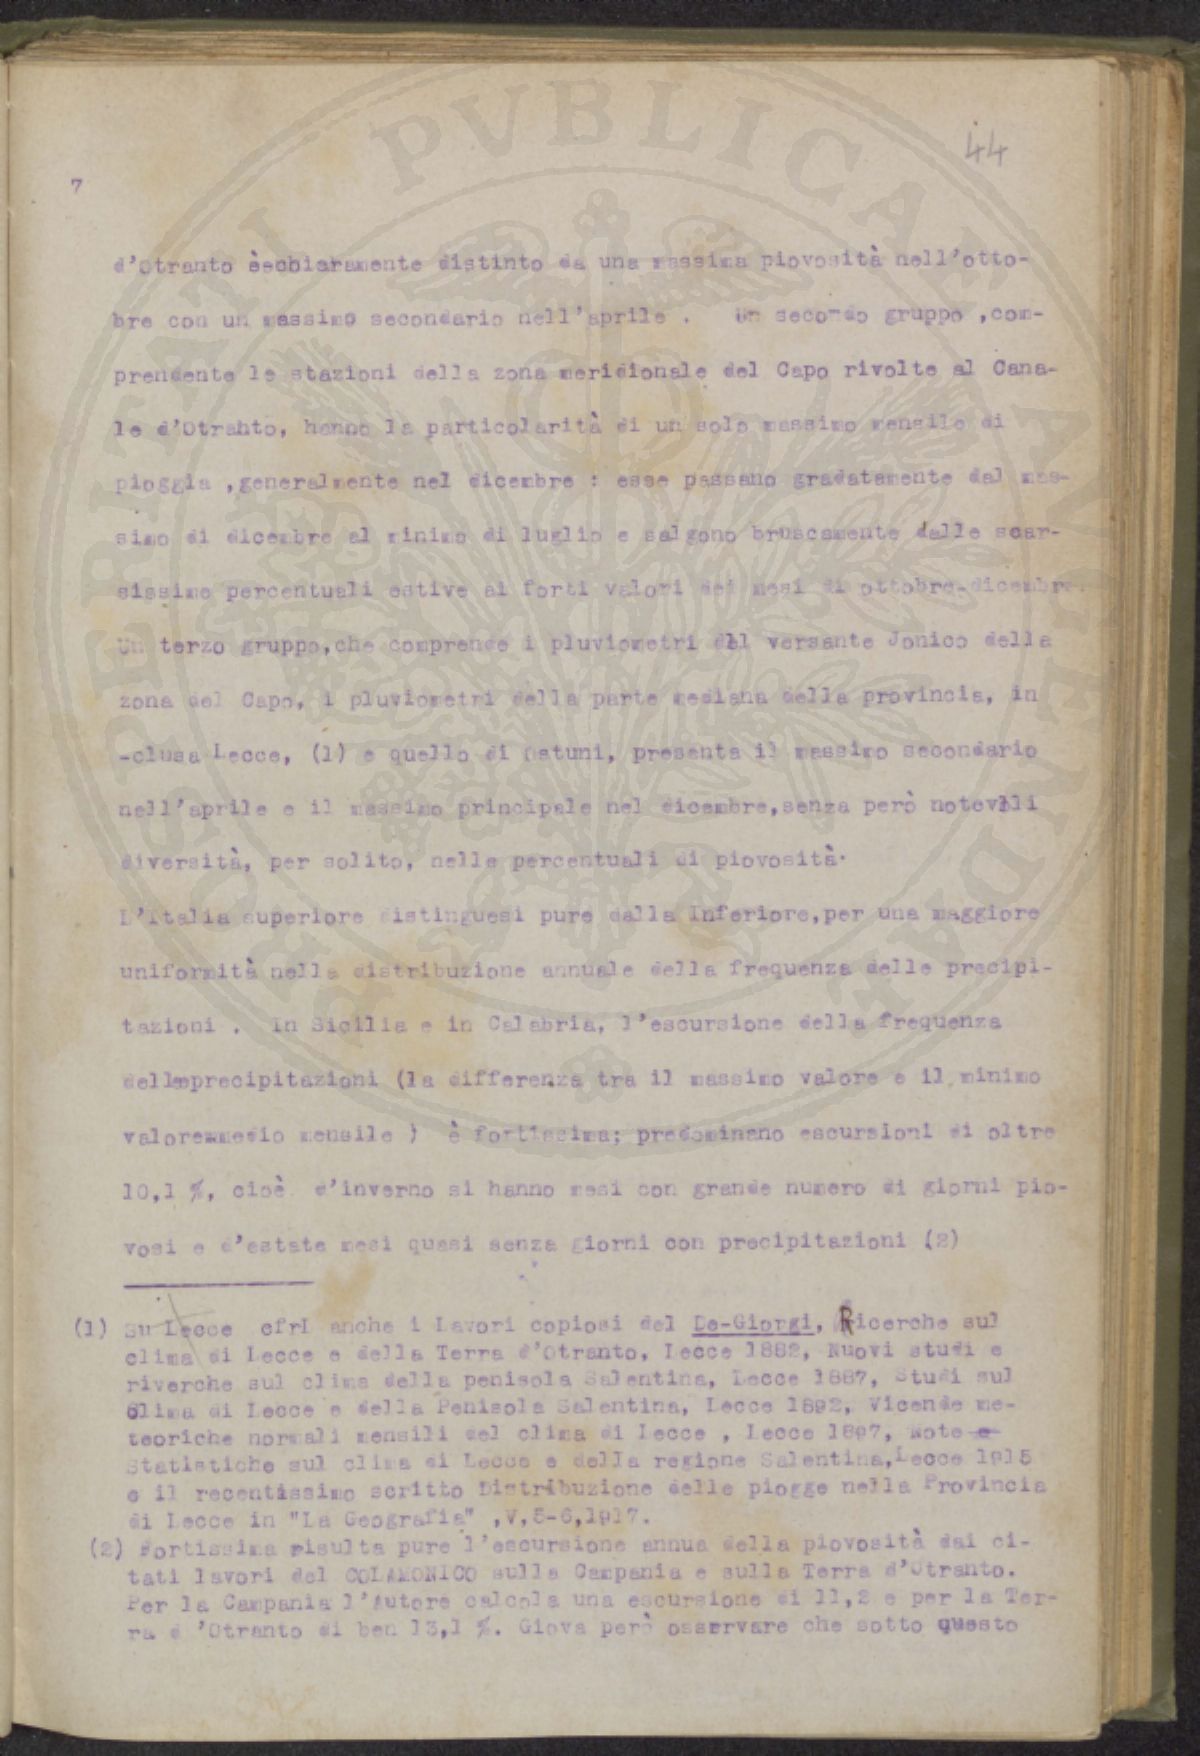 44
7
d'Otranto èschiaramente distinto da una massima piovosità nell'otto-
bre con un massimo secondario nell'aprile . Un secondo gruppo ,com-
prendente le stazioni della zona meridionale del Capo rivolte al Cana-
le d'Otranto, hanno la particolarità di un solo massimo mensile di
pioggia ,generalmente nel dicembre : esse passano gradatamente dal mas-
simo di dicembre al minimo di luglio e salgono bruscamente dalle scar-
sissime percentuali estive ai forti valori dei mesi di ottobre-dicembre.
Un terzo gruppo,che comprende i pluviometri del versante Jonico della
zona del Capo, i pluviometri della parte mediana della provincia, in
-clusa Lecce, (1) e quello di Ostuni, presenta il massimo secondario
nell'aprile e il massimo principale nel dicembre,senza però notevoli
diversità, per solito, nelle percentuali di piovosità.
L'Italia superiore distinguesi pure dalla Inferiore,per una maggiore
uniformità nella distribuzione annuale della frequenza delle precipi-
tazioni . In Sicilia e in Calabria, l'escursione della frequenza
delle precipitazioni (la differenza tra il massimo valore e il minimo
valore medio mensile ) è fortissima; predominano escursioni di oltre
10,1 %, cioè d'inverno si hanno mesi con grande numero di giorni pio-
vosi e d'estate mesi quasi senza giorni con precipitazioni (2)
(1) Su Lecce cfrI anche i Lavori copiosi del De-Giorgi, Ricerche sul
clima di Lecce e della Terra d'Otranto, Lecce 1882, Nuovi studi e
riverche sul clima della penisola Salentina, Lecce 1887, Studi sul
Clima di Lecce e della Penisola Salentina, Lecce 1892, Vicende me-
teoriche normali mensili del clima di Lecce , Lecce 1897, Note e
Statistiche sul clima di Lecce e della regione Salentina,Lecce 1915
e il recentissimo scritto Distribuzione delle piogge nella Provincia
di Lecce in "La Geografia" ,V,5-6,1917.
(2) Fortissima risulta pure l'escursione annua della piovosità dai ci-
tati lavori del COLAMONICO sulla Campania e sulla Terra d'Otranto.
Per la Campania l'Autore calcola una escursione di 11,2 e per la Ter-
ra d 'Otranto di ben 13,1 %. Giova però osservare che sotto questo